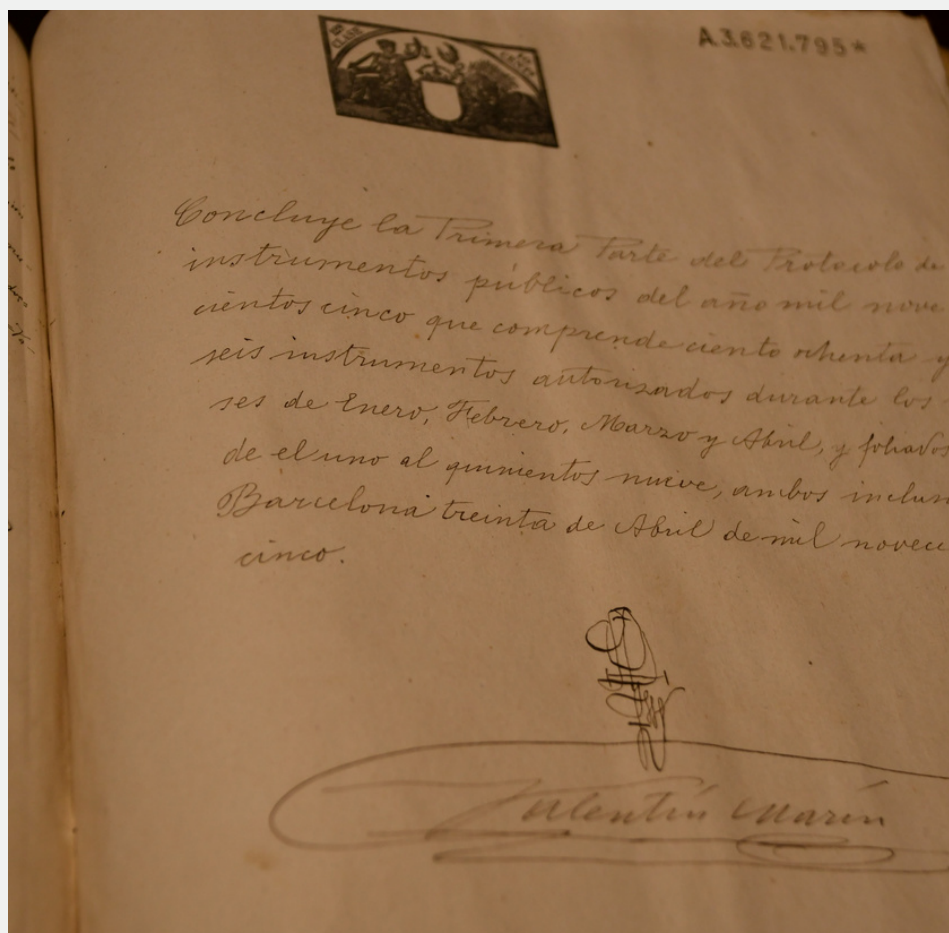 A.3.621.795*
Concluye la Primera Parte del Protocolo de
instrumentos públicos del año mil nove
cientos cinco que comprende ciento ochenta y
seis instrumentos autorizados durante los
ses de Enero, Febrero, Marzo y Abril, y foliados
de el uno al quinientos nueve, ambos inclus
Barcelona treinta de Abril de mil novec
cinco.
Valentín Marín